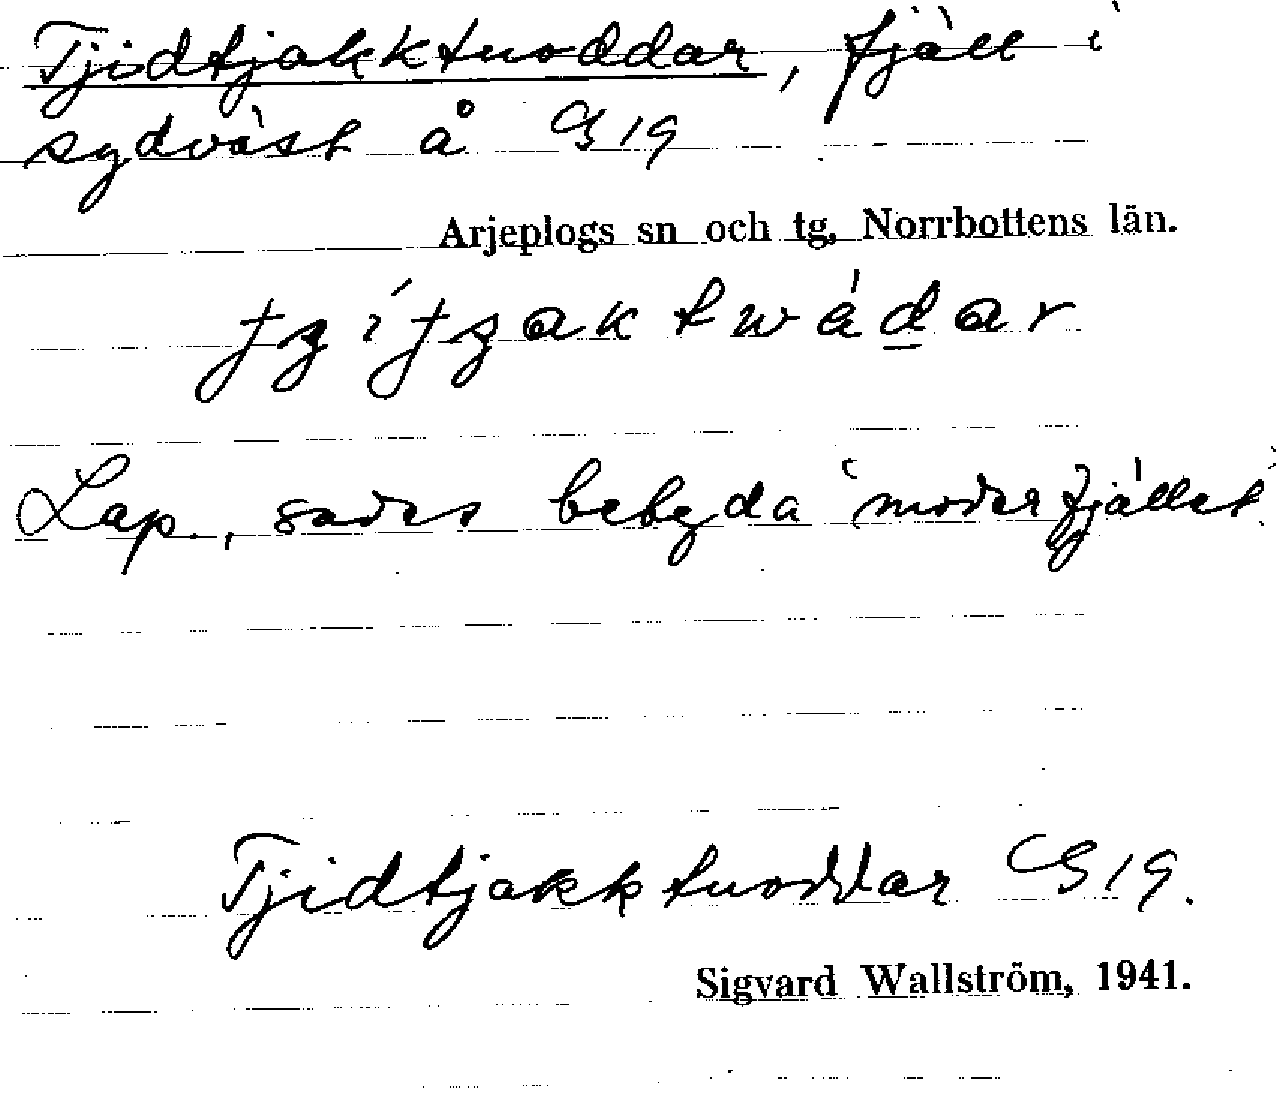 Tjidtjakktuoddar, fjäll i
sydväst å G 19
Arjeplogs sn och tg, Norrbottens län.
Lap., sades betyda 'moderfjället'.
Tjidtjakktuoddar G 19.
Sigvard Wallström, 1941.